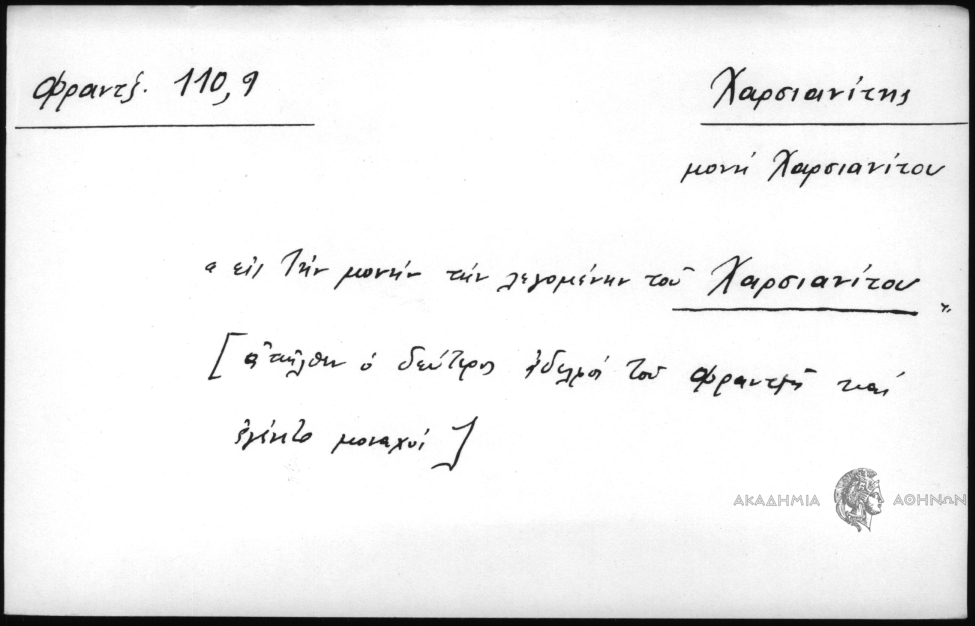 Φραντζ. 110,9
Χαρσιανίτης
μονή Χαρσιανίτου
« εἰς τὴν μονὴν τὴν λεγομένην τοῦ Χαρσιανίτου »
[ἀπῆλθεν ὁ δεύτερος ἀδελφός τοῦ Φραντζῆ καί
ἐγένετο μοναχός]
ΑΚΑΔΗΜΙΑ ΑΘΗΝΩΝ